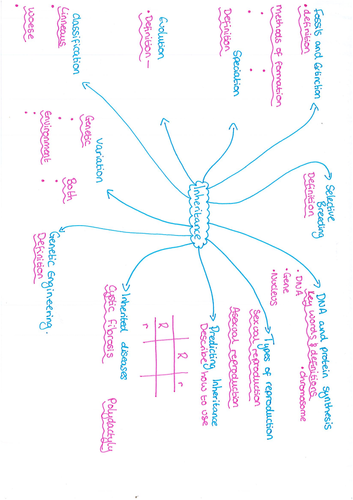 Fossils and Extinction
• definition
methods of formation
•
•
•
Speciation
Definition
Evolution
• Definition —
Classification
Linneaus
•
Woese
•
Variation
Genetic
•
Both
•
Environment
•
Inheritance
Selective
Breeding
Definition
DNA and protein synthesis
Key words & definitions
• DNA
• chromosome
• Gene
• Nucleus
Types of reproduction
Sexual reproduction
Asexual reproduction
Predicting Inheritance
Describe how to use
R r
R
r
Inherited diseases
Cystic fibrosis
Polydactyly
Genetic Engineering.
Definition